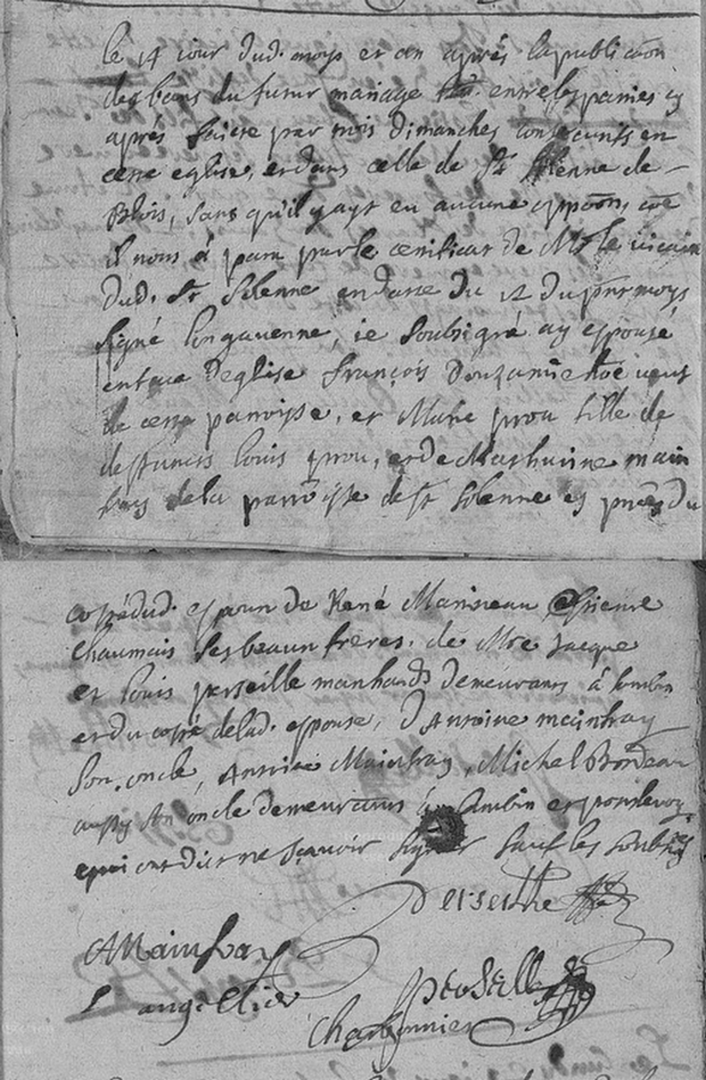 le 14 iour dud. moys et an après la publicaōn
des bans du futur mariage entre les parties cy
après faicte par trois dimanches consecutifs en
cette eglise, et dans celle de St Solenne de
Blois, sans qu'il y ayt eu aucune oppōon, coē
il nous à paru par le certificat de Mr le vicaire
dud. St Solenne en datte du 12 du pn̄t moys
signé Longauenne, ie soubsigné ay espousé
en face d'eglise François hōe veuf
de cette parroisse, et Marie prou fille de
deffuncts louis prou, et de Mathurine main
fray de la parroisse de St Solenne es pn̄ces du
costé dud. espoux de René Marineau Estienne
Chaumais ses beaux freres. de Mre Jacque
et louis perseille marchands demeurants à
et du costé de lad. espouse, d'Antoine mainfray
son oncle, Antoine Mainfray, Michel Bordeau
aussy son oncle demeurants à et pontlevoy.
qui ont dict ne sçauoir signer sauf les soubs.nés
Perseille
A Mainfray
Langellier
Perseille
Charbonnier